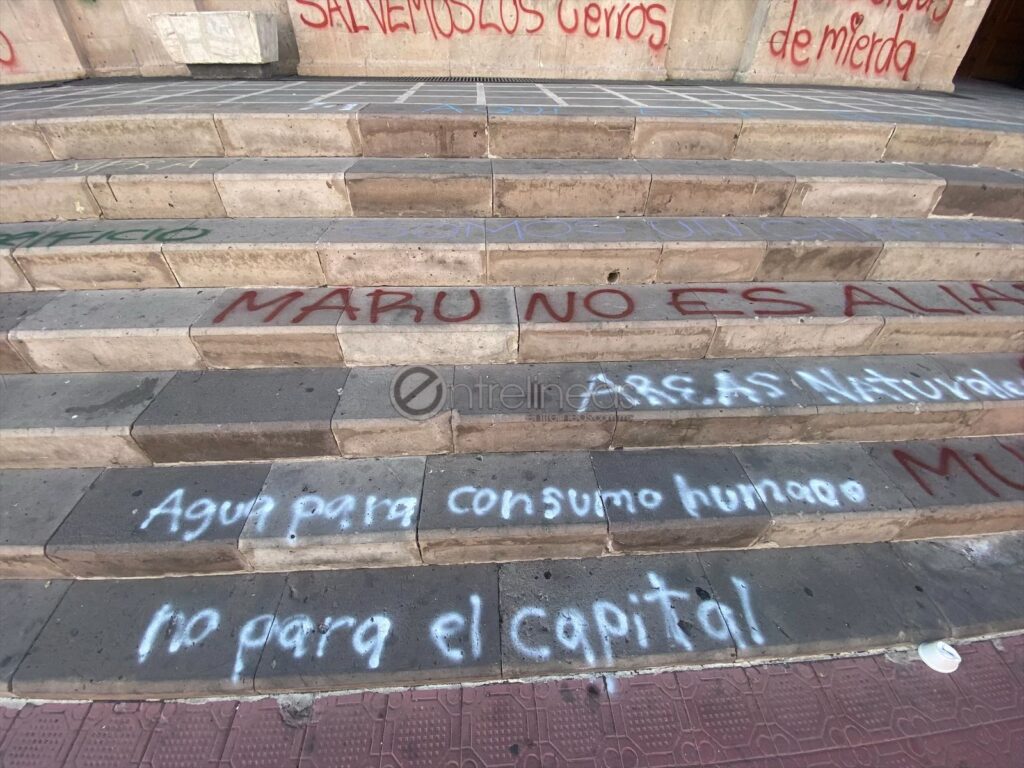 SALVEMOS LOS cerros
de mierda
AQUI
RIFICIO SOMOS UN
MARU NO ES ALIA
entrelíneas
AREAS Naturales
Agua para consumo humano
no para el capital